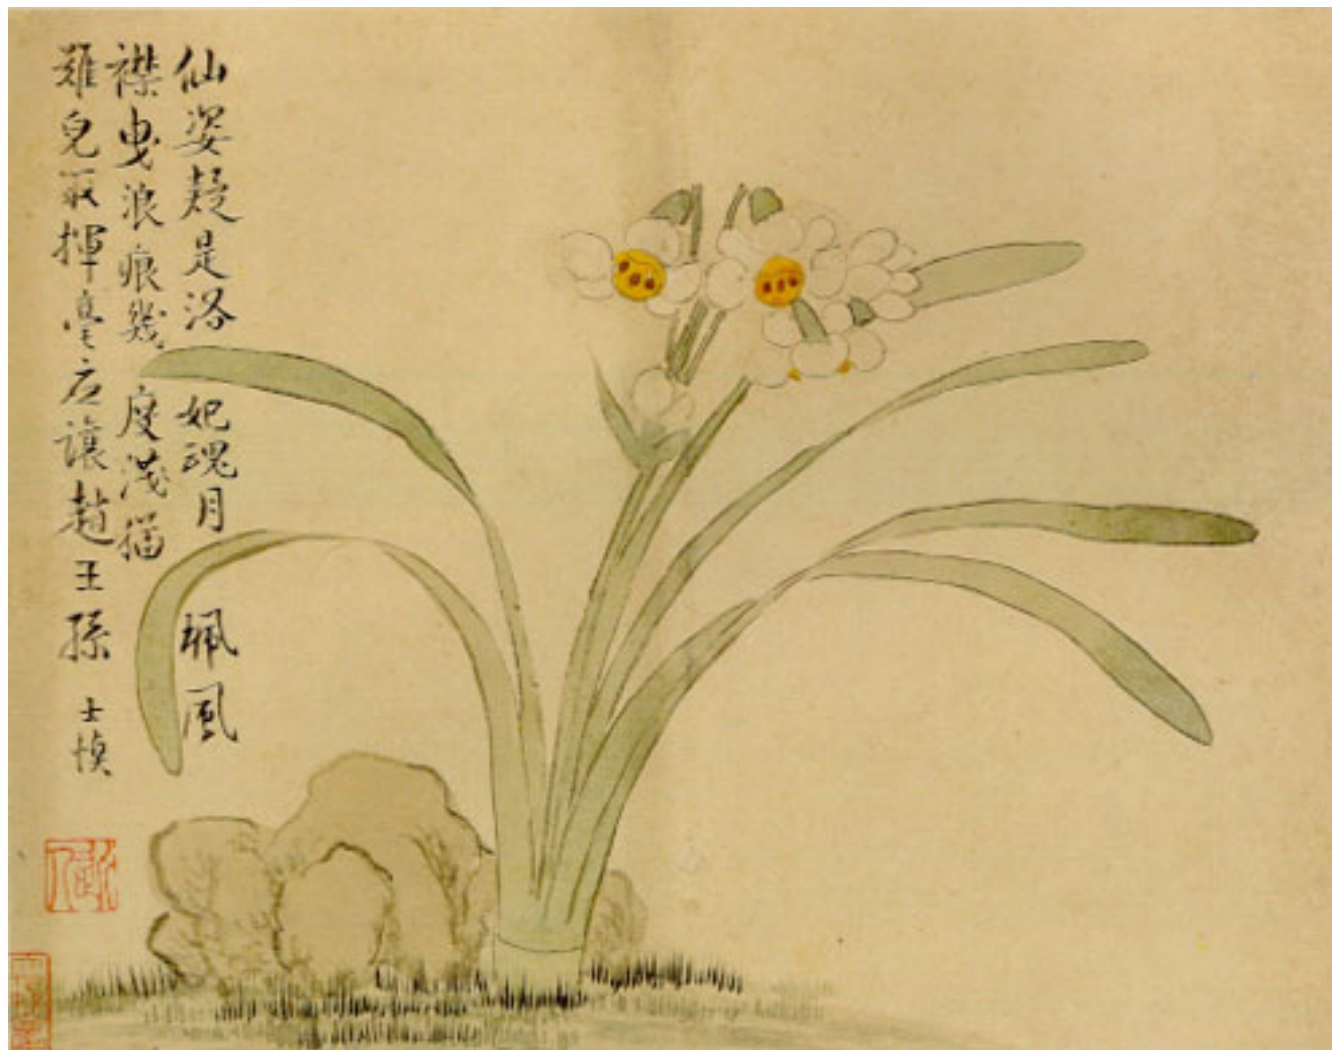 仙姿疑是洛妃魂月珮風
襟曳浪痕幾度淺描
難皃最揮毫应讓趙王孫
士慎